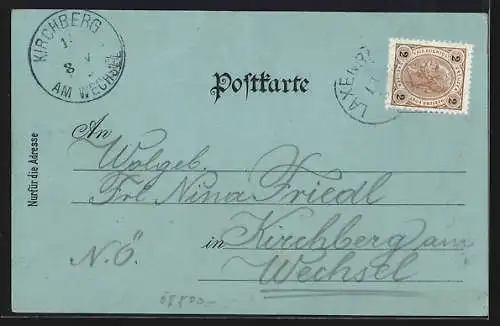 KIRCHBERG
AM WECHSEL
Postkarte
LAXENB
2 2
2 2
Nur für die Adresse
An
Wolgeb.
Frl. Nina Friedl
in Kirchberg am
Wechsel
N.Ö.